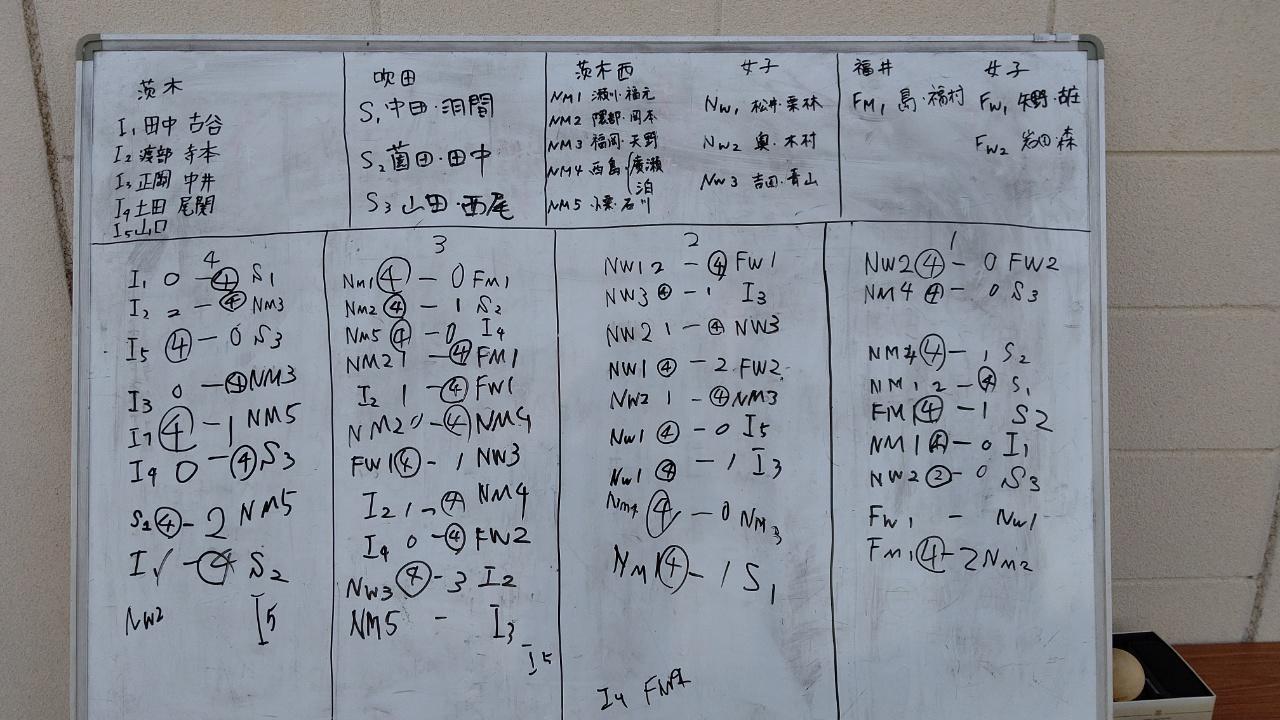 茨木
I1 田中 古谷
I2 渡部 寺本
I3 正岡 中井
I4 土田 尾関
I5 山口
吹田
S1 中田・洞間
S2 薗田・田中
S3 山田・西尾
茨木西
NM1 瀬川・福元
NM2 隈部・岡本
NM3 福岡・天野
NM4 西島・廣瀬
泊
NM5 石川
女子
NW1 松井・栗林
NW2 奥・木村
NW3 吉田・青山
福井
FM1 島・福村
女子
FW1 矢野・
FW2 岩田・森
4
I1 0 - ④ S1
I2 2 - ④ NM3
I5 ④ - 0 S3
I3 0 - ④ NM3
I1 ④ - 1 NM5
I4 0 - ④ S3
S2 ④ - 2 NM5
I1 - ④ S2
NW2 I5
3
NM1 ④ - 0 FM1
NM2 ④ - 1 S2
NM5 ④ - 0 I4
NM2 1 - ④ FM1
I2 1 - ④ FW1
NM2 0 - ④ NM4
FW1 ④ - 1 NW3
I2 1 - ④ NM4
I4 0 - ④ FW2
NW3 ④ - 3 I2
NM5 - I3
I5
2
NW1 2 - ④ FW1
NW3 ④ - 1 I3
NW2 1 - ④ NW3
NW1 ④ - 2 FW2
NW2 1 - ④ NM3
NW1 ④ - 0 I5
NW1 ④ - 1 I3
NM4 ④ - 0 NM3
NM1 ④ - 1 S1
I4
1
NW2 ④ - 0 FW2
NM4 ④ - 0 S3
NM4 ④ - 1 S2
NM1 2 - ④ S1
FM1 ④ - 1 S2
NM1 ④ - 0 I1
NW2 ② - 0 S3
FW1 - NW1
FM1 ④ - 2 NM2